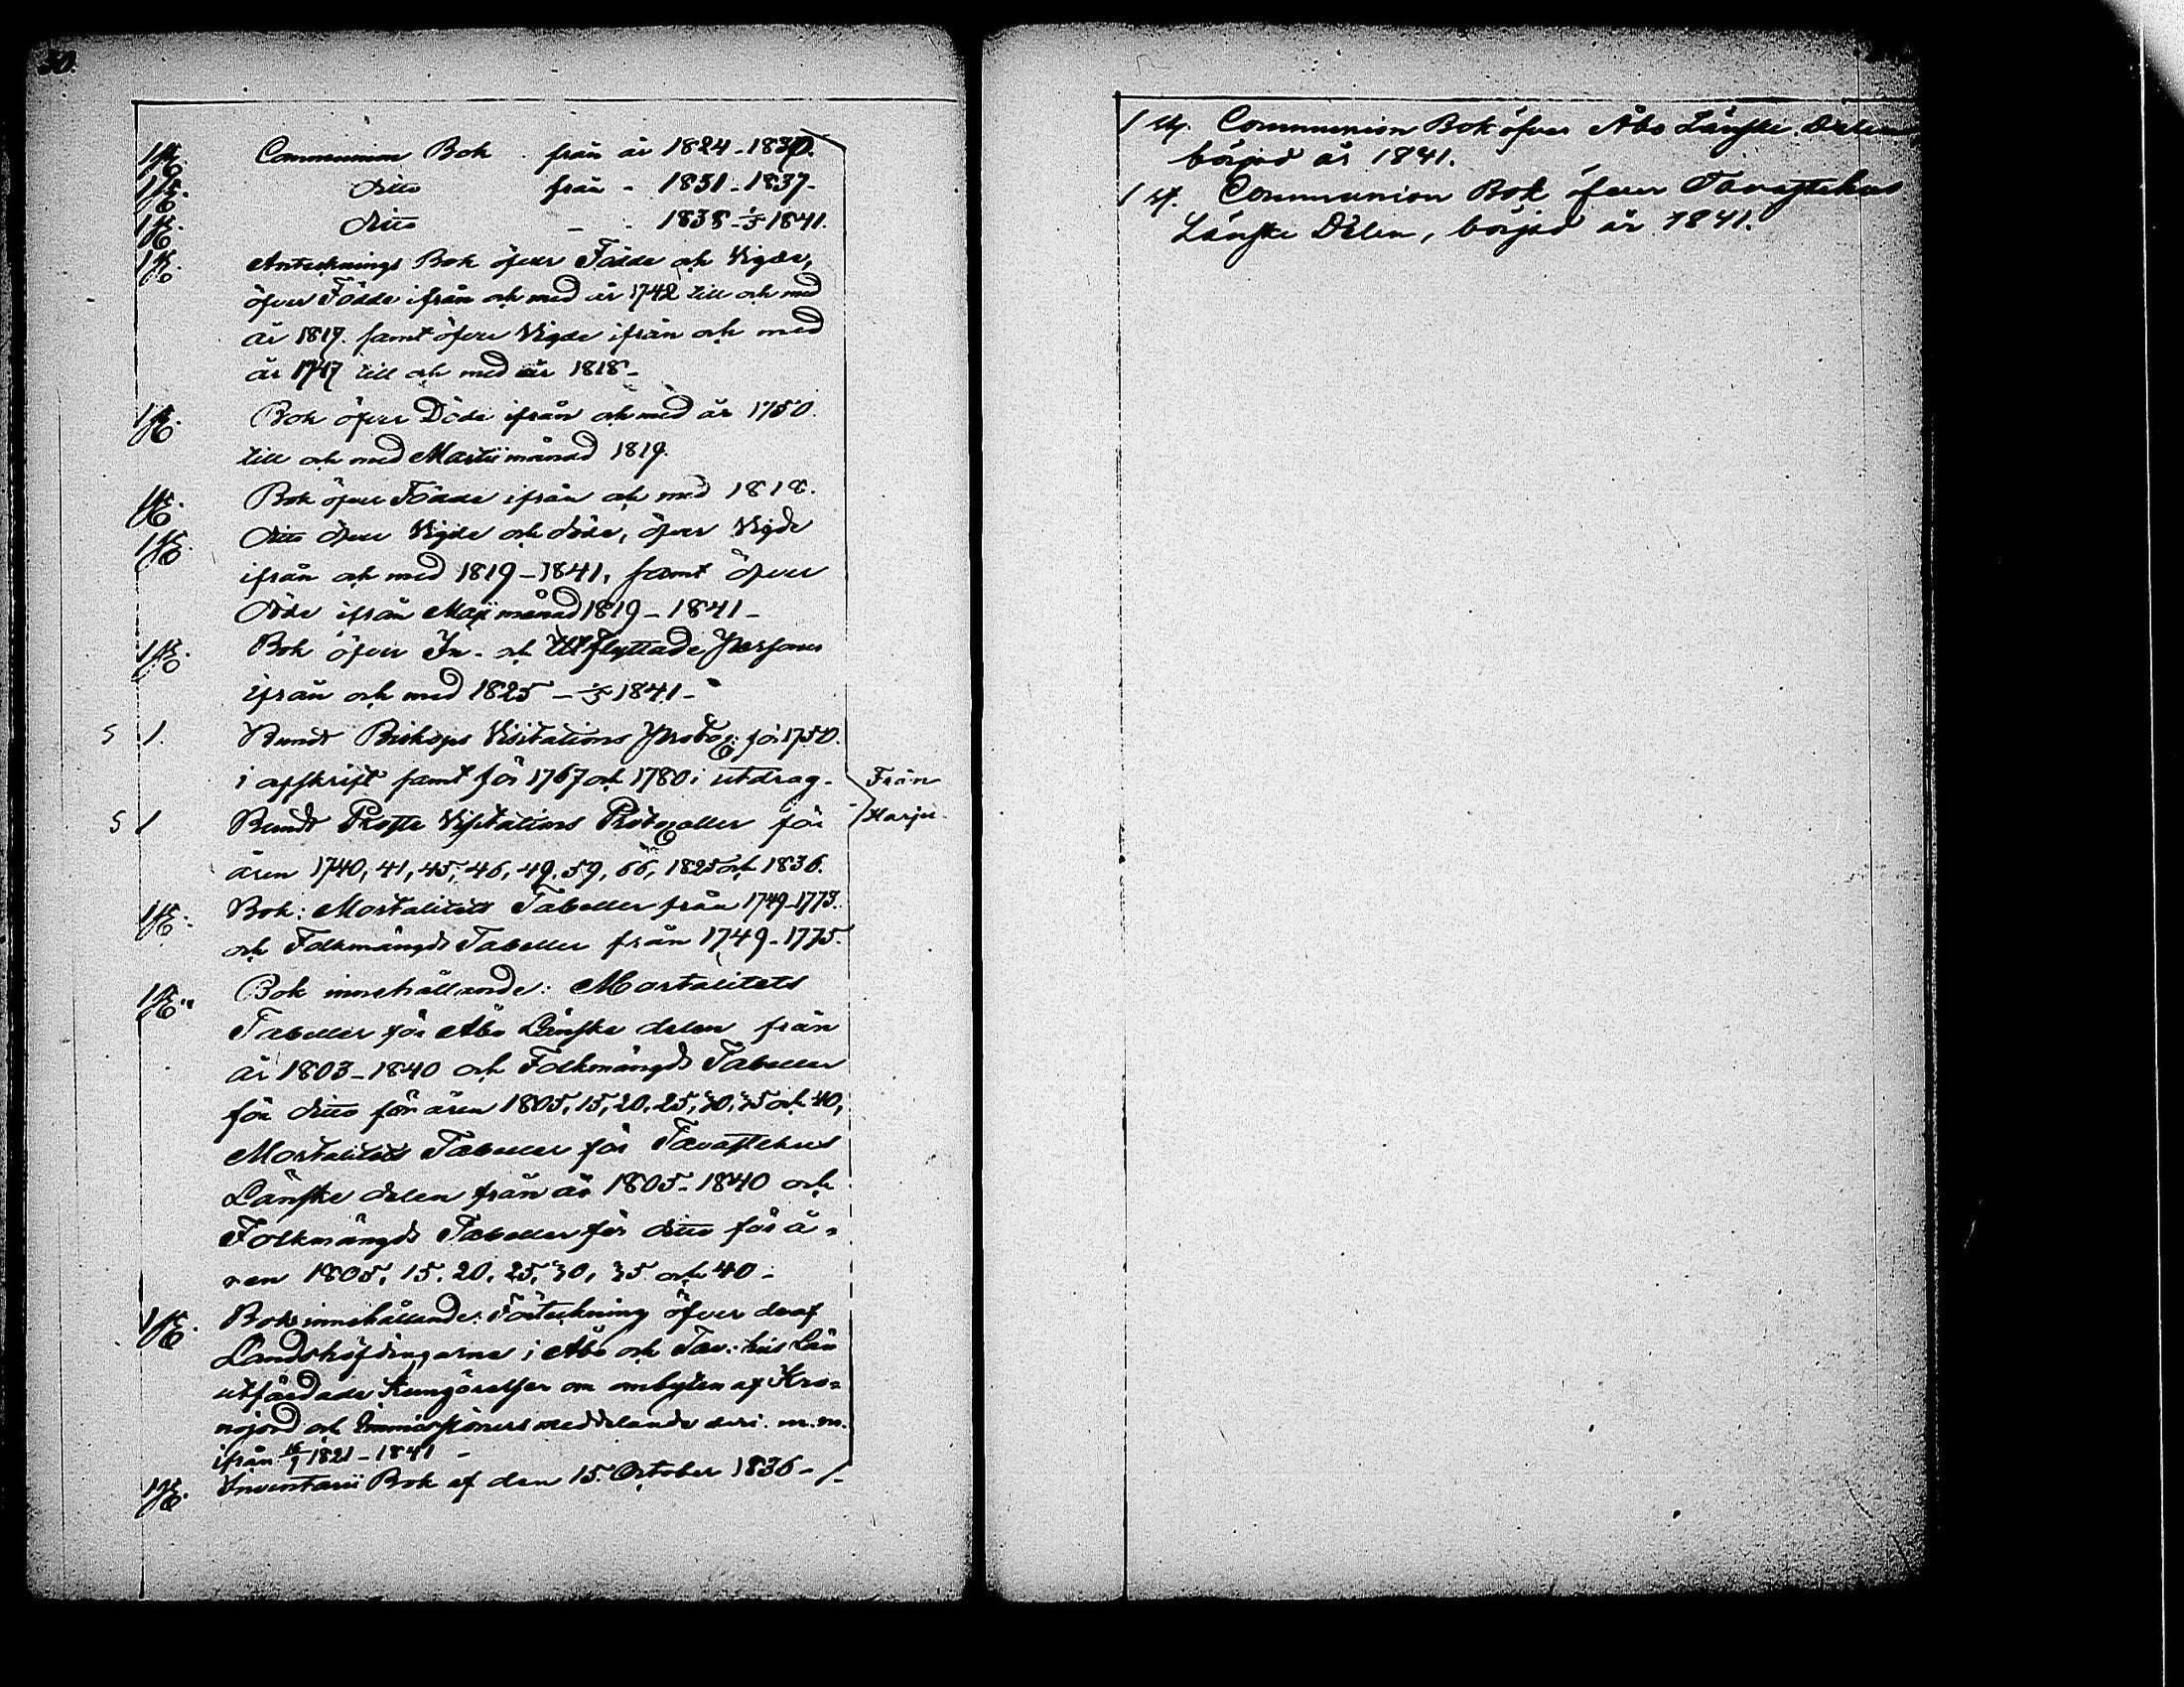 30.
1 st. Communion Bok . från år 1824-1830.
1 st. Ditto från - 1831-1837-
1 st. Ditto - - 1838-1/5 1841.
1 st. Antecknings Bok öfver Födde och Vigde,
öfver Födde ifrån och med år 1742 till och med
år 1817. samt öfver Vigde ifrån och med
år 1747 till och med år 1818-
1 st. Bok öfver Döde ifrån och med år 1750.
till och med Martii månad 1819.
1 st. Bok öfver Födde ifrån och med 1818.
1 st. Ditto öfver Vigde och döde, öfver Vigde
ifrån och med 1819-1841, samt öfver
Döde ifrån Maji månad 1819-1841-
1 st. Bok öfver In- och Utflyttade Personer
ifrån och med 1825 - 1/5 1841-
5 1. Bundt Biskops Visitations Protoc: för 1750.
i afskrift samt för 1767 och 1780 i utdrag-
5 1 Bundt Proste Visitations Protocoller för
åren 1740, 41, 45, 46, 49, 59, 66, 1825 och 1836.
1 st. Bok: Mortalitets Tabeller från 1749-1773.
och Folkmängds Tabeller från 1749-1775.
1 st. Bok innehållande: Mortalitets
Tabeller för Åbo Länska delen från
år 1803-1840 och Folkmängds Tabeller
för ditto för åren 1805, 15, 20, 25, 30, 35 och 40,
Mortalitets Tabeller för Tavastehus
Länske delen från år 1805-1840 och
Folkmängds Tabeller för ditto för å-
ren 1805, 15, 20, 25, 30, 35 och 40-
1 st. Bok innehållande: Förteckning öfver de af
Landshöfdingarne i Åbo och Tav:hus Län
utfärdade Kungörelser om ombyten af Kro-
nojord och meddelande deri. m.m.
ifrån 1821-1841 -
1 st. Inventarii Bok af den 15. October 1836-
Från
Harju.
1 st. Communion Bok öfver Åbo Länske Delen
börjad år 1841.
1 st. Communion Bok öfver Tavastehus
Länske Delen, börjad år 1841.